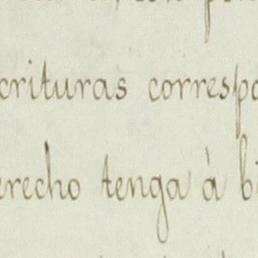 crituras correspo
erecho tenga à bi